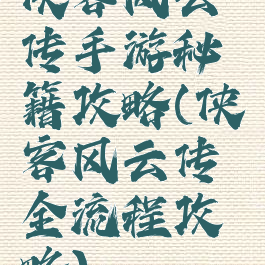 侠客风云
传手游秘
籍攻略(侠
客风云传
全流程攻
略)